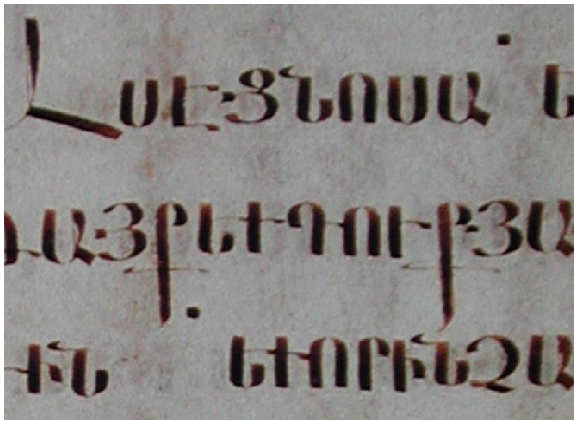 Ասէ ցնոսա. ե
թայք եւ դուք յա
ին. եւ որ ինչ ա